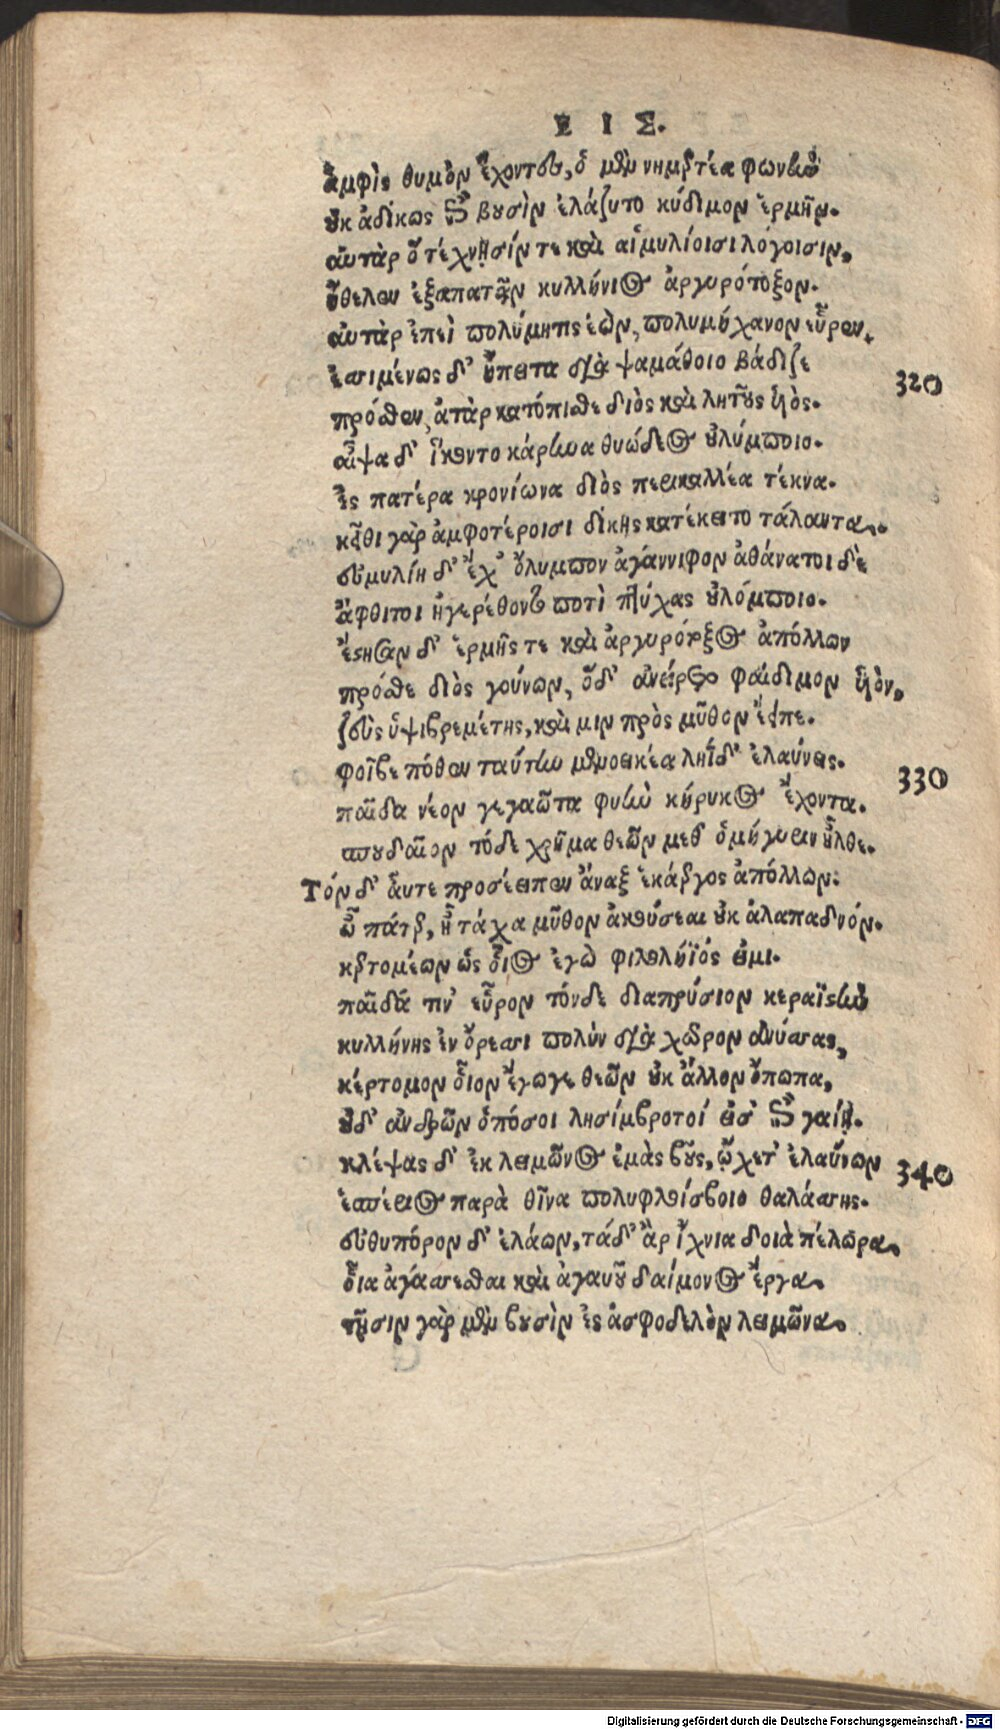 ΕΙΣ.
ἀμφὶς θυμὸν ἔχοντες, ὁ μὲν νημερτέα φωνὴν
οὐκ ἀδίκως ἐπὶ βουσὶν ἐλάζυτο κύδιμον ἑρμῆν.
αὐτὰρ ὁ τέχνῃσίν τε καὶ αἱμυλίοισι λόγοισιν,
ἤθελεν ἐξαπατᾶν κυλλήνιος ἀργυρότοξον.
αὐτὰρ ἐπεὶ πολύμητις ἐὼν, πολυμήχανον εὗρεν,
ἐσσυμένως δ' ἤπειτα διὰ ψαμάθοιο βάδιζε
320
πρόσθεν, ἀτὰρ κατόπισθε διὸς καὶ λητοῦς ὑιὸς.
αἶψα δ' ἵκοντο κάρηνα θυώδεος οὐλύμποιο.
ἐς πατέρα κρονίωνα διὸς περικαλλέα τέκνα.
κεῖθι γὰρ ἀμφοτέροισι δίκης κατέκειτο τάλαντα.
εὐμυλίη δ' ἔχ' ὄλυμπον ἀγάννιφον ἀθάνατοι δὲ
ἄφθιτοι ἠγερέθοντο ποτὶ πτύχας οὐλύμποιο.
ἔστησαν δ' ἑρμῆς τε καὶ ἀργυρότοξος ἀπόλλων
πρόσθε διὸς γούνων, ὅδ' ἀνείρετο φαίδιμον ὑιὸν,
ζεὺς ὑψιβρεμέτης, καί μιν πρὸς μῦθον ἔειπε.
φοῖβε πόθεν ταύτην μενοεικέα ληΐδ' ἐλαύνεις.
330
παῖδα νέον γεγαῶτα φυὴν κήρυκος ἔχοντα.
σπουδαῖον τόδε χρῆμα θεῶν μεθ' ὁμήγυριν ἦλθε.
Τόν δ' αὖτε προσέειπεν ἄναξ ἑκάεργος ἀπόλλων:
ὦ πάτερ, ἦ τάχα μῦθον ἀκούσεαι οὐκ ἀλαπαδνόν.
κερτομέων ὡς οἶος ἐγὼ φιλολήϊός εἰμι.
παῖδά τιν' εὗρον τόνδε διαπρύσιον κεραϊστὴν
κυλλήνης ἐν ὄρεσσι πολὺν διὰ χῶρον ἀνύσσας,
κέρτομον οἷον ἔγωγε θεῶν οὐκ ἄλλον ὄπωπα,
οὐδ' ἀνδρῶν ὁπόσοι λησίμβροτοί εἰσ' ἐπὶ γαίῃ.
κλέψας δ' ἐκ λειμῶνος ἐμὰς βοῦς, ᾤχετ' ἐλαύνων
340
ἑσπέριος παρὰ θῖνα πολυφλοίσβοιο θαλάσσης.
εὐθυπόρον δ' ἐλάων, τάδ' ἂρ ἴχνια δοιὰ πέλωρα.
οἷα ἀγάσσεσθαι καὶ ἀγαυοῦ δαίμονος ἔργα.
τῇσιν γὰρ μὲν βουσὶν ἐς ἀσφοδελὸν λειμῶνα.
Digitalisierung gefördert durch die Deutsche Forschungsgemeinschaft - DFG